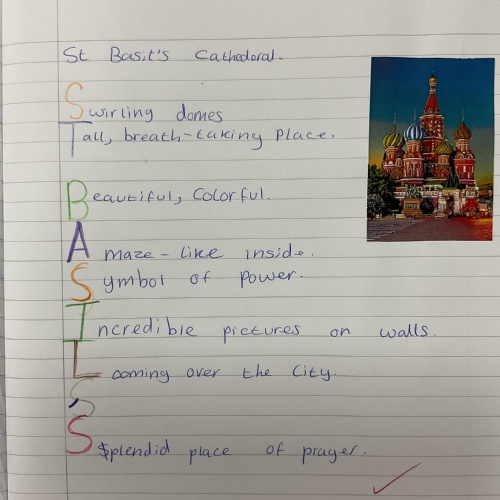 St Basil's Cathederal.
Swirling domes
Tall, breath-taking place.
Beautiful, Colorful.
Amaze-like inside.
Symbol of power.
Incredible pictures on walls.
Looming over the City.
'
Splendid place of prayer.